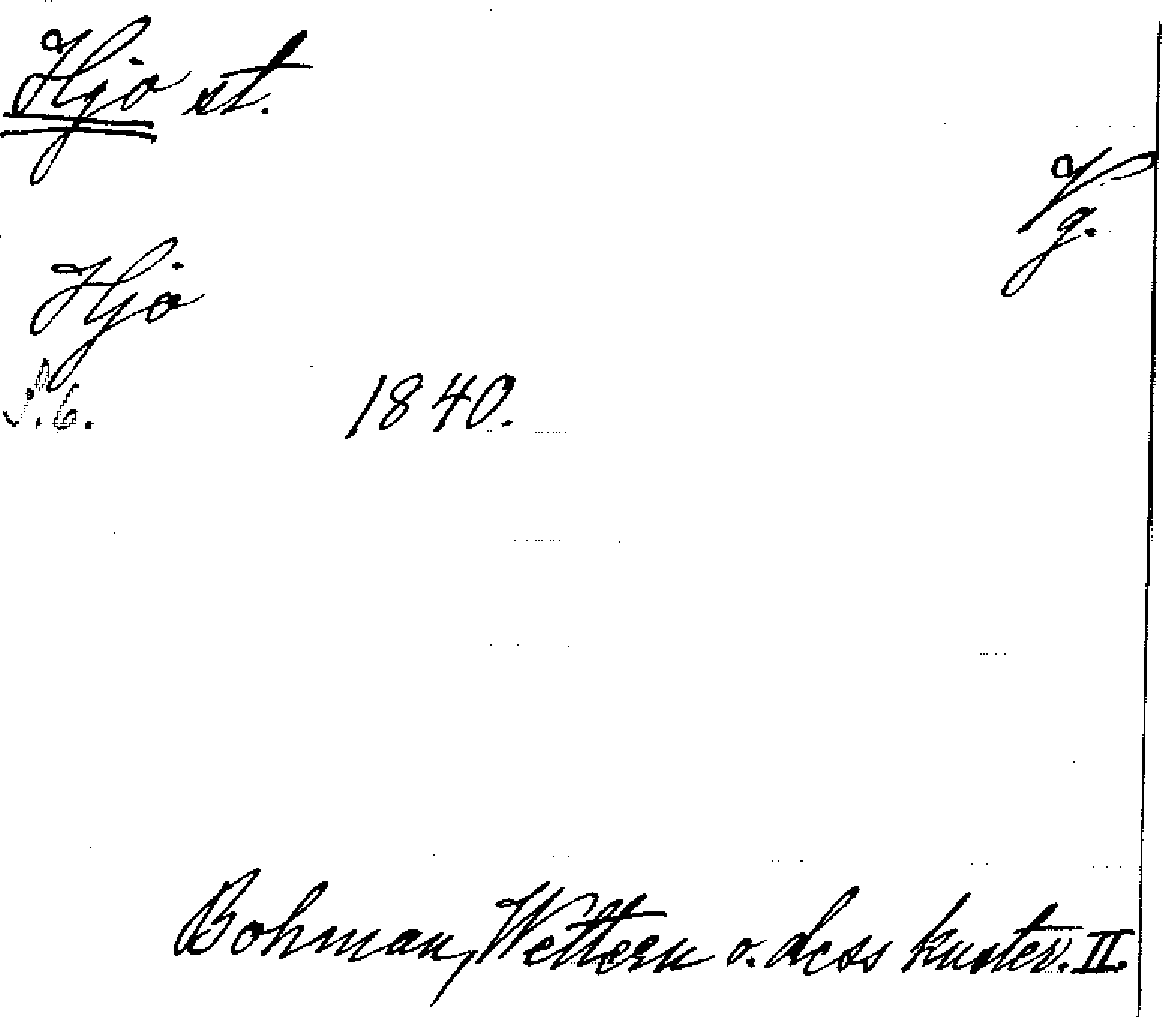 Hjo st.
Vg.
Hjo
S. 6. 1840.
Bohman, Wettern o. dess kuster. II.